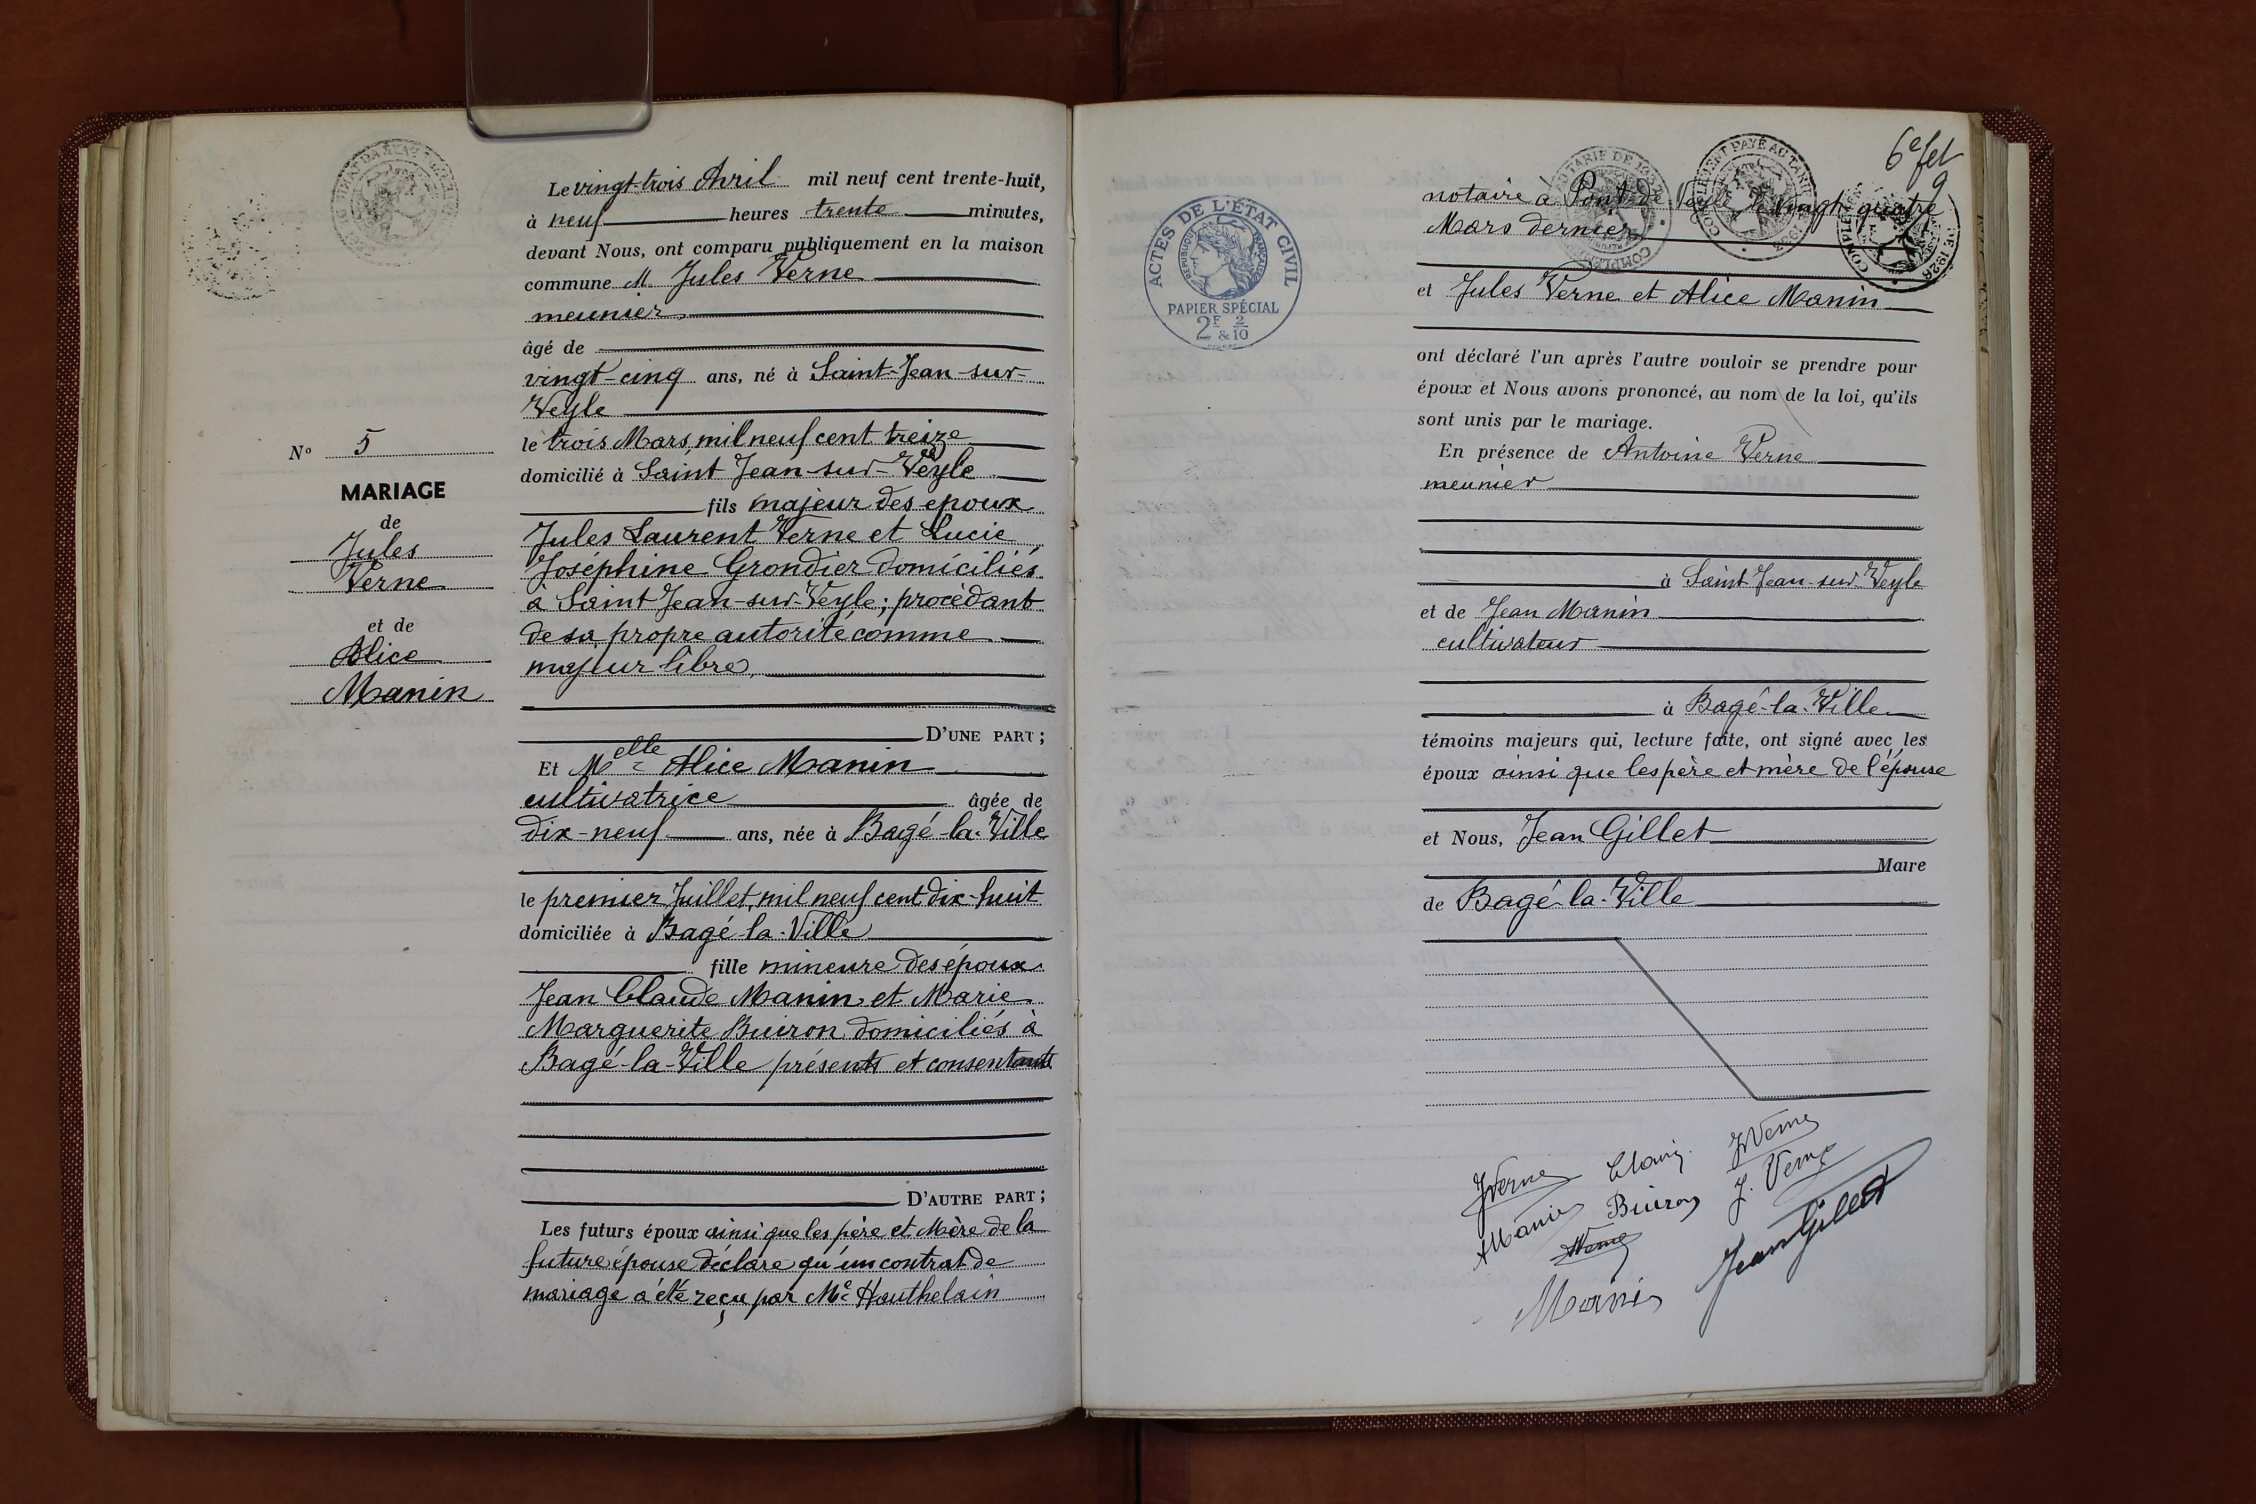 N° 5
MARIAGE
de
Jules
Verne
et de
Alice
Manin
Le vingt-trois Avril mil neuf cent trente-huit,
à neuf heures trente minutes,
devant Nous, ont comparu publiquement en la maison
commune M. Jules Verne
meunier
âgé de
vingt-cinq ans, né à Saint-Jean-sur-
Veyle
le trois Mars, mil neuf cent treize
domicilié à Saint Jean-sur-Veyle
fils majeur des époux
Jules Laurent Verne et Lucie
Joséphine Grondier domiciliés
à Saint Jean-sur-Veyle; procédant
de sa propre autorité comme
majeur libre,
D'UNE PART;
Et Melle Alice Manin
cultivatrice âgée de
dix-neuf ans, née à Bagé-la-Ville
le premier Juillet, mil neuf cent dix-huit
domiciliée à Bagé-la-Ville
fille mineure des époux
Jean Claude Manin et Marie
Marguerite Buiron domiciliés à
Bagé-la-Ville présents et consentants
D'AUTRE PART;
Les futurs époux ainsi que les père et Mère de la
future épouse déclare qu'un contrat de
mariage a été reçu par Me Hauthelain
6e fet
9
ACTES DE L'ÉTAT CIVIL
RÉPUBLIQUE FRANÇAISE
PAPIER SPÉCIAL
2F & 2/10
notaire à Pont-de-Veyle le vingt-quatre
Mars dernier
et Jules Verne et Alice Manin
ont déclaré l'un après l'autre vouloir se prendre pour
époux et Nous avons prononcé, au nom de la loi, qu'ils
sont unis par le mariage.
En présence de Antoine Verne
meunier
à Saint Jean-sur-Veyle
et de Jean Manin
cultivateur
à Bagé-la-Ville
témoins majeurs qui, lecture faite, ont signé avec les
époux ainsi que les père et mère de l'épouse
et Nous, Jean Gillet
Maire
de Bagé-la-Ville
JVerne
JVerne
Manin Buiron J. Verne
Verne
Manin
Jean Gillet